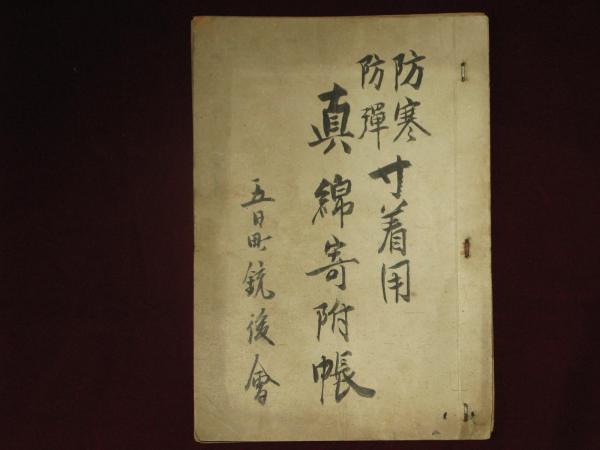 防寒
防彈
寸着用
真綿寄附帳
五日町銃後會